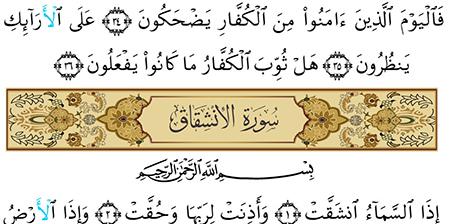 فَٱلْيَوْمَ ٱلَّذِينَ ءَامَنُوا۟ مِنَ ٱلْكُفَّارِ يَضْحَكُونَ ﴿٣٤﴾ عَلَى ٱلْأَرَآئِكِ
يَنظُرُونَ ﴿٣٥﴾ هَلْ ثُوِّبَ ٱلْكُفَّارُ مَا كَانُوا۟ يَفْعَلُونَ ﴿٣٦﴾
سُورَةُ الِانْشِقَاقِ
بِسْمِ ٱللَّهِ ٱلرَّحْمَٰنِ ٱلرَّحِيمِ
إِذَا ٱلسَّمَآءُ ٱنشَقَّتْ ﴿١﴾ وَأَذِنَتْ لِرَبِّهَا وَحُقَّتْ ﴿٢﴾ وَإِذَا ٱلْأَرْضُ